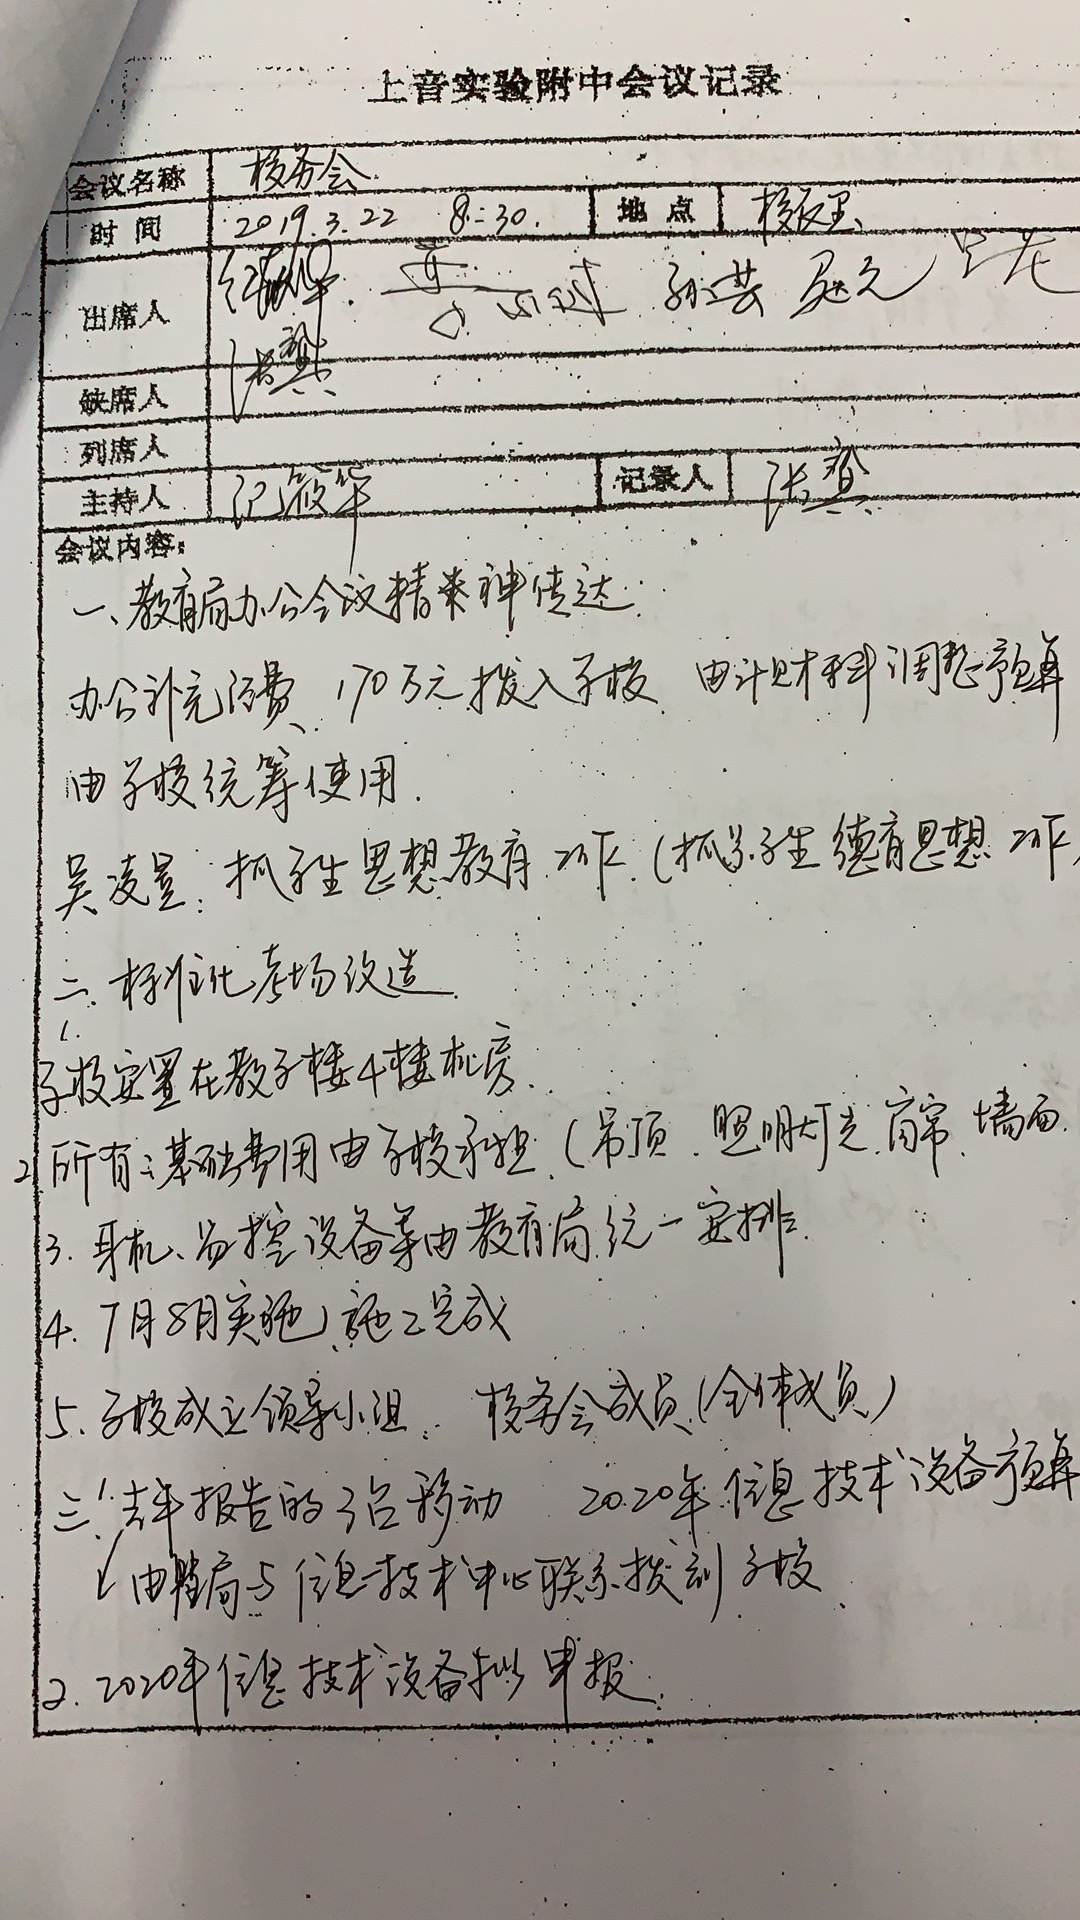 上音实验附中会议记录
会议名称 校务会
时间 2019.3.22 8:30. 地点 校长室
出席人 孙芸
张赟
缺席人
列席人
主持人 记录人 张赟
会议内容:
一、教育局办公会议精神传达.
办公补充经费、170万元拨入学校 由计财科调整预算
由学校统筹使用.
吴凌昱: 抓学生思想教育工作 (抓学生德育思想工作
二. 标准化考场改造
1.
学校安置在教学楼4楼机房.
2 所有基础费用由学校承担. (吊顶. 照明灯光 窗帘. 墙面.
3. 耳机、监控设备等由教育局统一安排.
4. 7月8月实施, 施工完成
5. 学校成立领导小组. 校务会成员 (全体成员)
三. 1. 去年报告的3台移动 2020年信息技术设备预算
由 局与信息技术中心联系拨到学校
2. 2020年信息技术设备拟申报.